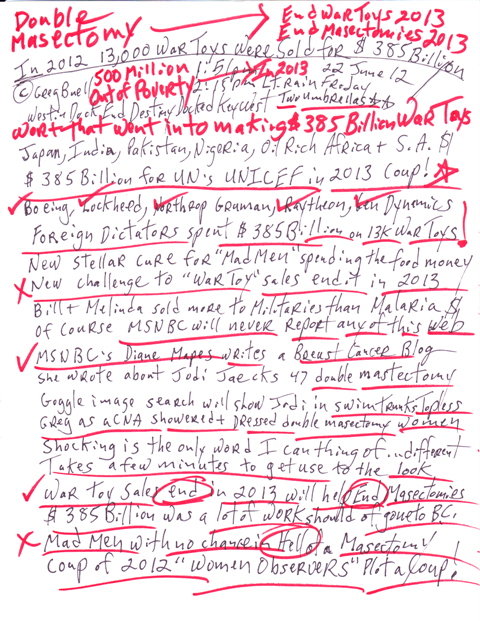 Double Masectomy
End War Toys 2013
End Masectomies 2013
In 2012 13,000 War Toys were Sold for $385 Billion
© Greg Buell 1:51pm 22 June 12
500 Million Out of Poverty In 2013
2:15pm Lt. Rain Friday
Westin Dock End Destiny Docked Key West Two umbrellas
Work that went into making $385 Billion War Toys
Japan, India, Pakistan, Nigeria, Oil Rich Africa + S.A. $
$385 Billion for UN's UNICEF in 2013 Coup!
Boeing, Lockheed, Northrop Gruman, Raytheon, Gen Dynamics
Foreign Dictators spent $385 Billion on 13K War Toys!
New Stellar cure for "Mad Men" spending the food money
New challenge to "War Toy" sales end it in 2013
Bill + Melinda sold more to Militaries than Malaria $
of course MSNBC will never report any of this web
MSNBC's Diane Mapes writes a Breast Cancer Blog
she wrote about Jodi Jaecks 47 double mastectomy
Goggle image search will show Jodi in swim trunks Topless
Greg as a CNA showered + Dressed double masectomy women
Shocking is the only word I can thing of... different
Takes a few minutes to get use to the look
War Toy Sales end in 2013 will help End Masectomies
$385 Billion was a lot of work should of gone to BC.
Mad Men with no chance in Hell of a Masectomy
Coup of 2012 "Women Observers" Plot a Coup!